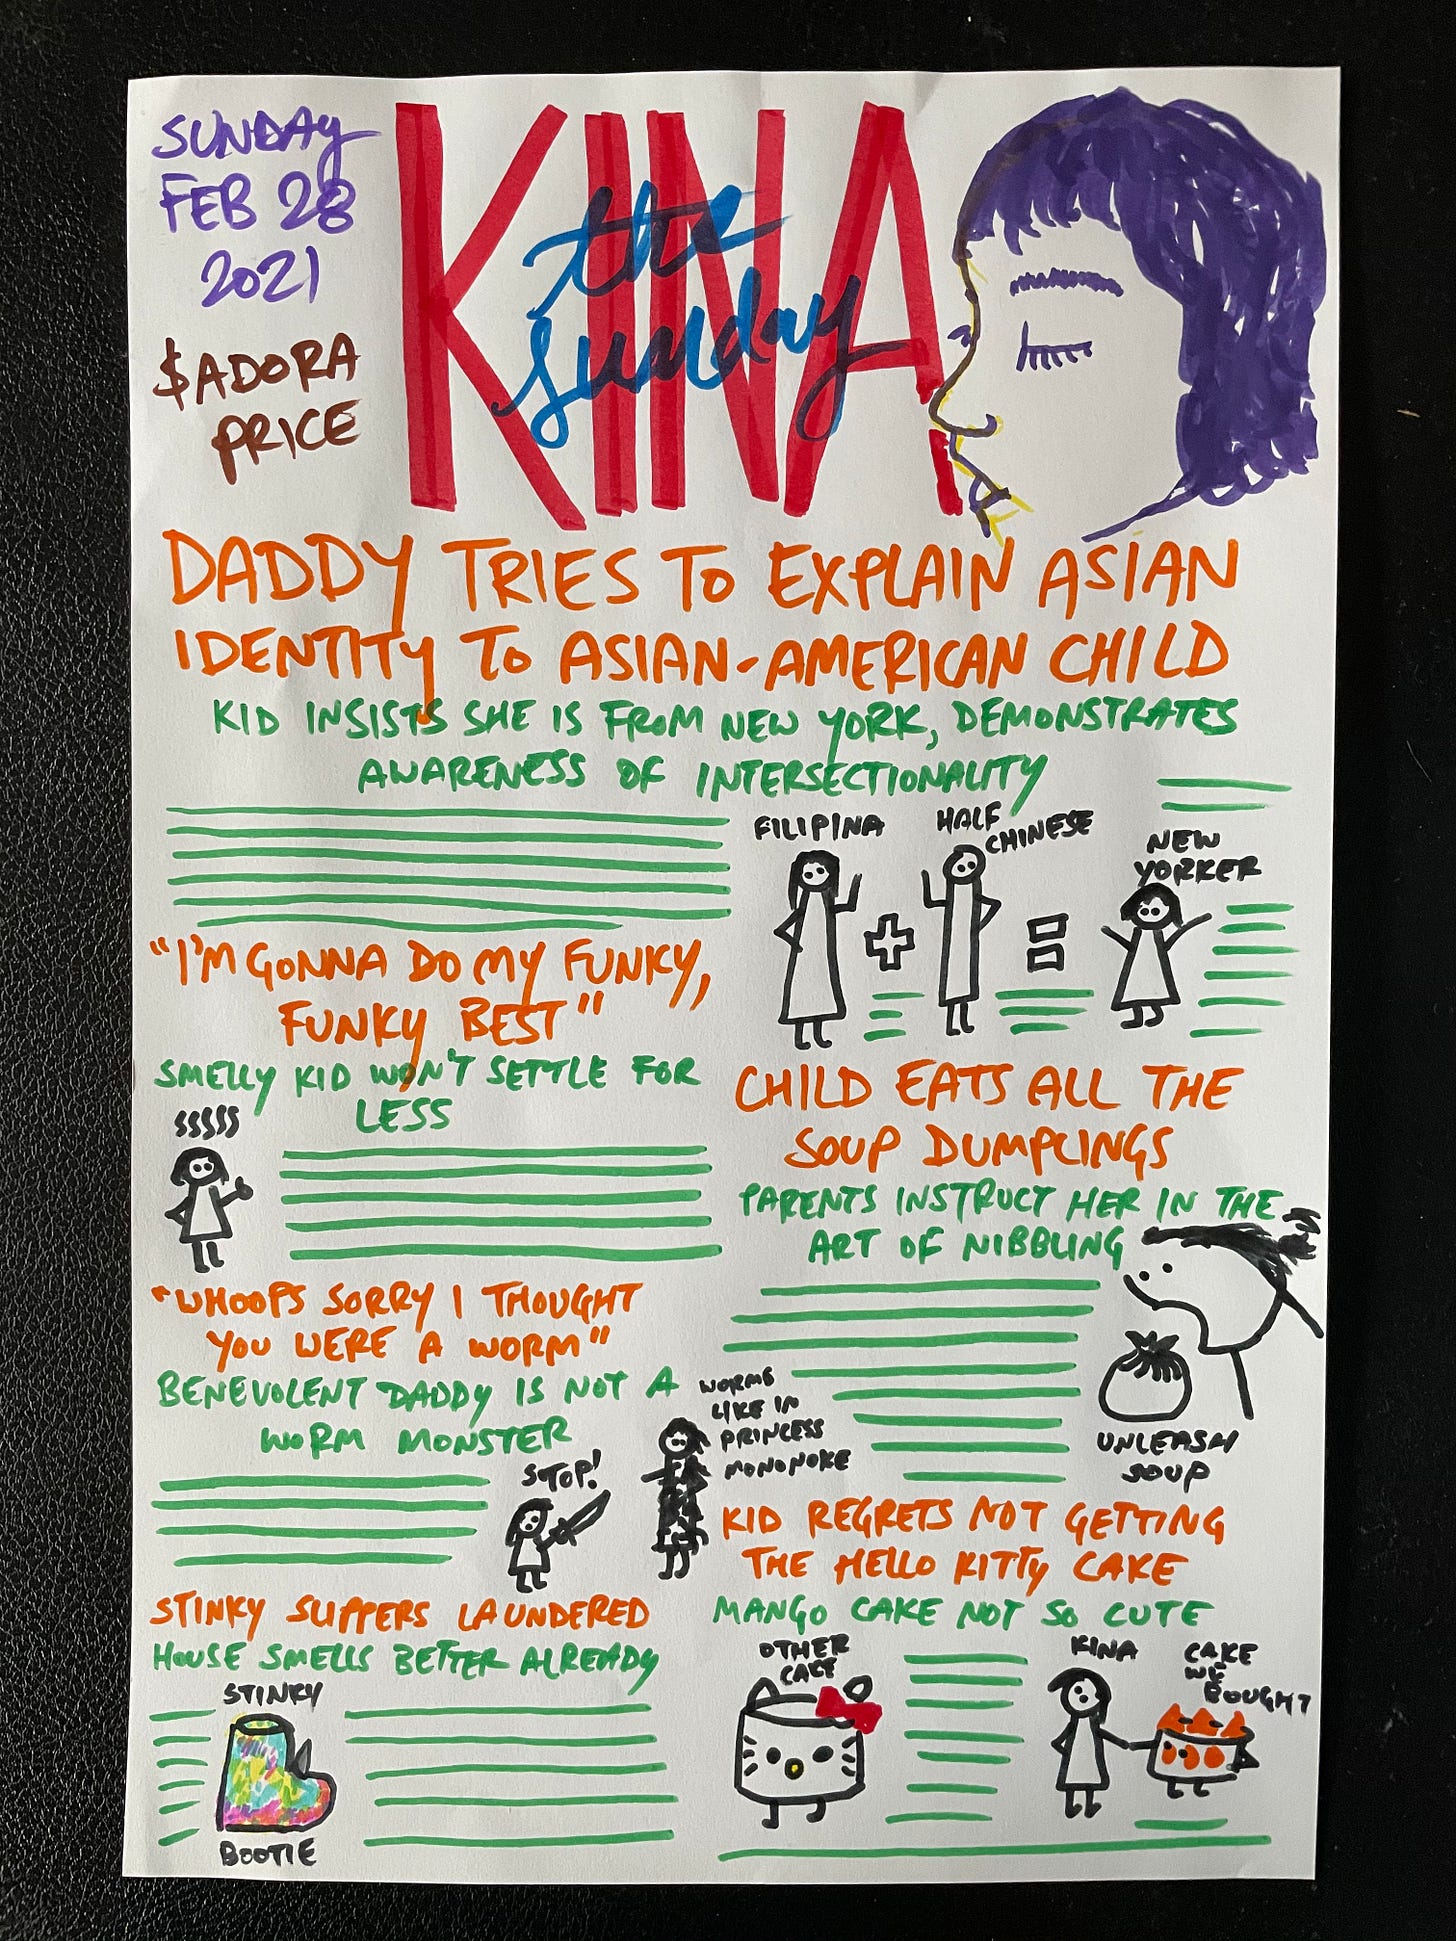 SUNDAY
FEB 28
2021
$ADORA
PRICE
KINA
the
sunday
DADDY TRIES TO EXPLAIN ASIAN
IDENTITY TO ASIAN-AMERICAN CHILD
KID INSISTS SHE IS FROM NEW YORK, DEMONSTRATES
AWARENESS OF INTERSECTIONALITY
FILIPINA
HALF
CHINESE
NEW
YORKER
"I'M GONNA DO MY FUNKY,
FUNKY BEST"
SMELLY KID WON'T SETTLE FOR
LESS
SSSSS
"WHOOPS SORRY I THOUGHT
YOU WERE A WORM"
BENEVOLENT DADDY IS NOT A
WORM MONSTER
STOP!
WORMS
LIKE IN
PRINCESS
MONONOKE
STINKY SLIPPERS LAUNDERED
HOUSE SMELLS BETTER ALREADY
STINKY
BOOTIE
CHILD EATS ALL THE
SOUP DUMPLINGS
PARENTS INSTRUCT HER IN THE
ART OF NIBBLING
UNLEASH
SOUP
KID REGRETS NOT GETTING
THE HELLO KITTY CAKE
MANGO CAKE NOT SO CUTE
OTHER
CAKE
KINA
CAKE
WE
BOUGHT